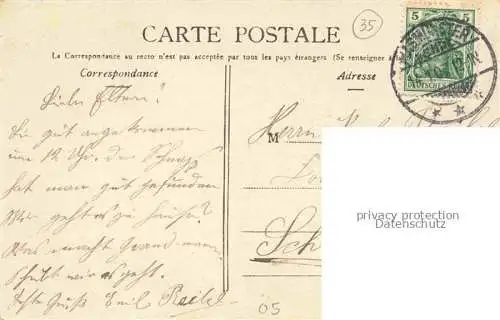 CARTE POSTALE
35
La Correspondance au recto n'est pas acceptée par tous les pays étrangers (Se renseigner à
Correspondance
Adresse
5 5
DEUTSCHES
Liebe Eltern!
Bin gut angekommen
um 12 Uhr. den Schnaps
hat man gut gefunden
Wie geht es zu Hause?
Was macht Grand-mam
Schreibt wie es geht.
Gruß Emil
M
Herrn
Sch
privacy protection
Datenschutz
05